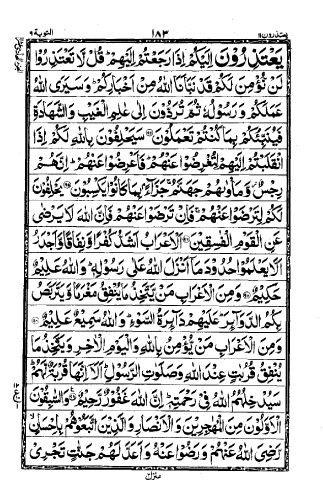 يعتذرون ١١ ١٨٣ التوبة ٩
يَعْتَذِرُوْنَ اِلَيْكُمْ اِذَا رَجَعْتُمْ اِلَيْهِمْ قُلْ لَّا تَعْتَذِرُوْا
لَنْ نُّؤْمِنَ لَكُمْ قَدْ نَبَّاَنَا اللّٰهُ مِنْ اَخْبَارِكُمْ وَسَيَرَى اللّٰهُ
عَمَلَكُمْ وَرَسُوْلُهٗ ثُمَّ تُرَدُّوْنَ اِلٰى عٰلِمِ الْغَيْبِ وَالشَّهَادَةِ
فَيُنَبِّئُكُمْ بِمَا كُنْتُمْ تَعْمَلُوْنَ ۝ سَيَحْلِفُوْنَ بِاللّٰهِ لَكُمْ اِذَا
انْقَلَبْتُمْ اِلَيْهِمْ لِتُعْرِضُوْا عَنْهُمْ فَاَعْرِضُوْا عَنْهُمْ اِنَّهُمْ
رِجْسٌ وَّمَاْوٰىهُمْ جَهَنَّمُ جَزَآءً بِمَا كَانُوْا يَكْسِبُوْنَ ۝ يَحْلِفُوْنَ
لَكُمْ لِتَرْضَوْا عَنْهُمْ فَاِنْ تَرْضَوْا عَنْهُمْ فَاِنَّ اللّٰهَ لَا يَرْضٰى
عَنِ الْقَوْمِ الْفٰسِقِيْنَ ۝ اَلْاَعْرَابُ اَشَدُّ كُفْرًا وَّنِفَاقًا وَّاَجْدَرُ
اَلَّا يَعْلَمُوْا حُدُوْدَ مَآ اَنْزَلَ اللّٰهُ عَلٰى رَسُوْلِهٖ وَاللّٰهُ عَلِيْمٌ
حَكِيْمٌ ۝ وَمِنَ الْاَعْرَابِ مَنْ يَّتَّخِذُ مَا يُنْفِقُ مَغْرَمًا وَّيَتَرَبَّصُ
بِكُمُ الدَّوَآئِرَ عَلَيْهِمْ دَآئِرَةُ السَّوْءِ وَاللّٰهُ سَمِيْعٌ عَلِيْمٌ ۝
وَمِنَ الْاَعْرَابِ مَنْ يُّؤْمِنُ بِاللّٰهِ وَالْيَوْمِ الْاٰخِرِ وَيَتَّخِذُ مَا
يُنْفِقُ قُرُبٰتٍ عِنْدَ اللّٰهِ وَصَلَوٰتِ الرَّسُوْلِ اَلَآ اِنَّهَا قُرْبَةٌ لَّهُمْ
سَيُدْخِلُهُمُ اللّٰهُ فِيْ رَحْمَتِهٖ اِنَّ اللّٰهَ غَفُوْرٌ رَّحِيْمٌ ۝ وَالسّٰبِقُوْنَ
الْاَوَّلُوْنَ مِنَ الْمُهٰجِرِيْنَ وَالْاَنْصَارِ وَالَّذِيْنَ اتَّبَعُوْهُمْ بِاِحْسَانٍ
رَّضِيَ اللّٰهُ عَنْهُمْ وَرَضُوْا عَنْهُ وَاَعَدَّ لَهُمْ جَنّٰتٍ تَجْرِيْ
منزل